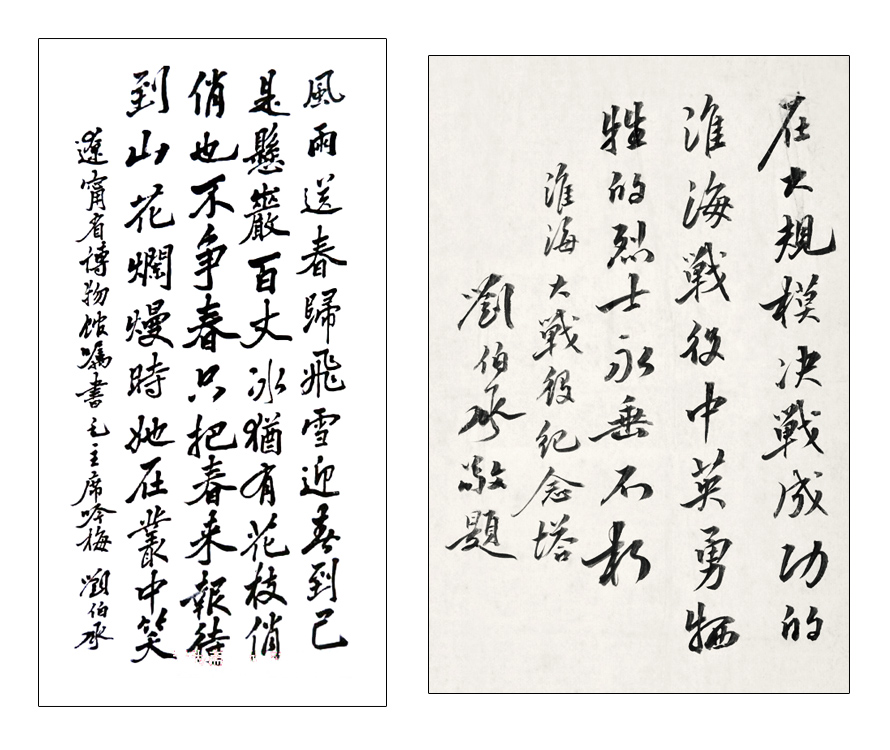 風雨送春歸飛雪迎春到已
是懸巖百丈冰猶有花枝俏
俏也不争春只把春来報待
到山花爛熳時她在叢中笑
遼寧省博物馆嘱書毛主席咏梅 劉伯承
在大規模决戰成功的
淮海戰役中英勇牺
牲的烈士永垂不朽
淮海大戰役纪念塔
劉伯承敬題